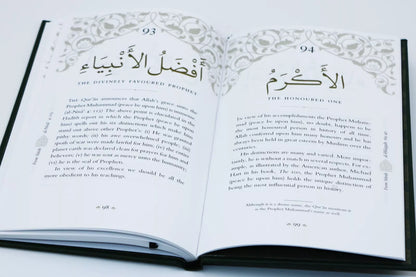 93
أَفْضَلُ الأَنْبِيَاءِ
THE DIVINELY FAVOURED PROPHET
The Qur'ān announces that Allah's grace unto the
Prophet Muḥammad (peace be upon him) has been great
(al-Nisā' 4: 113). The above point is elucidated in the
Ḥadīth report in which the Prophet (peace be upon
him) spells out his six distinctions which make him
stand out above other Prophets: (i)
pithy words; (ii) he was awe-inspiring; (iii)
spoils of war were made lawful for him; (iv) the entire
planet earth was declared clean for prayers for him and
believers; (v) he was sent as mercy unto the
and (vi) he is the seal of Prophets.
In view of his excellence we should be all the
more obedient to his teachings.
98
94
الأَكْرَمُ
THE HONOURED ONE
In view of his accomplishments the Prophet Muḥam-
mad (peace be upon him), no doubt, happens to be
the most honoured person in history of all time.
Allah conferred upon him many honours and he has
always been held in great esteem by Muslims over the
centuries.
His distinctions are many and varied. More impor-
tantly, he is without a match in several respects. For ex-
ample, as illustrated by the American author, Michael
Hart in his book, The 100, the Prophet Muḥammad
(peace be upon him) holds the unique distinction of
being the most influential person in history.
Although it is a divine name, the Qur'ān mentions it
as the Prophet Muḥammad's name as well.
99